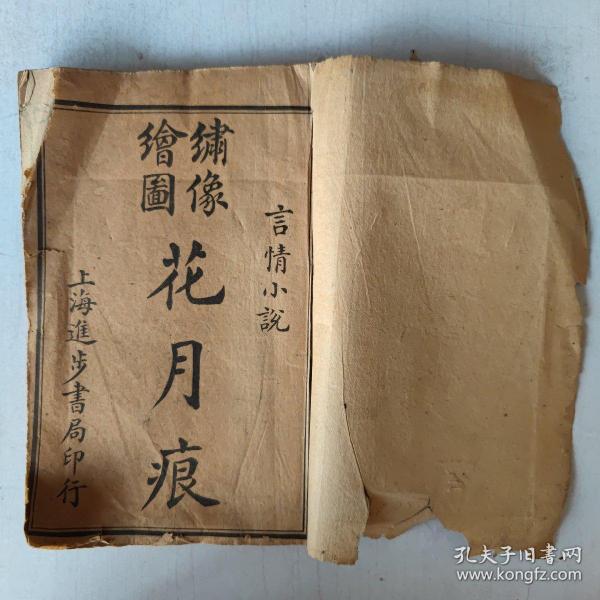 言情小說
繡像
繪圖
花月痕
上海進步書局印行
孔夫子旧书网
www.kongfz.com